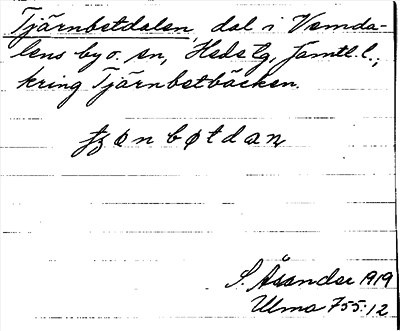 Tjärnbetdalen, dal i Vemda-
lens by o. sn, Hede tg, Jämtl. l.,
kring Tjärnbetbäcken.
S. Åsander 1919
Ulma 755:12